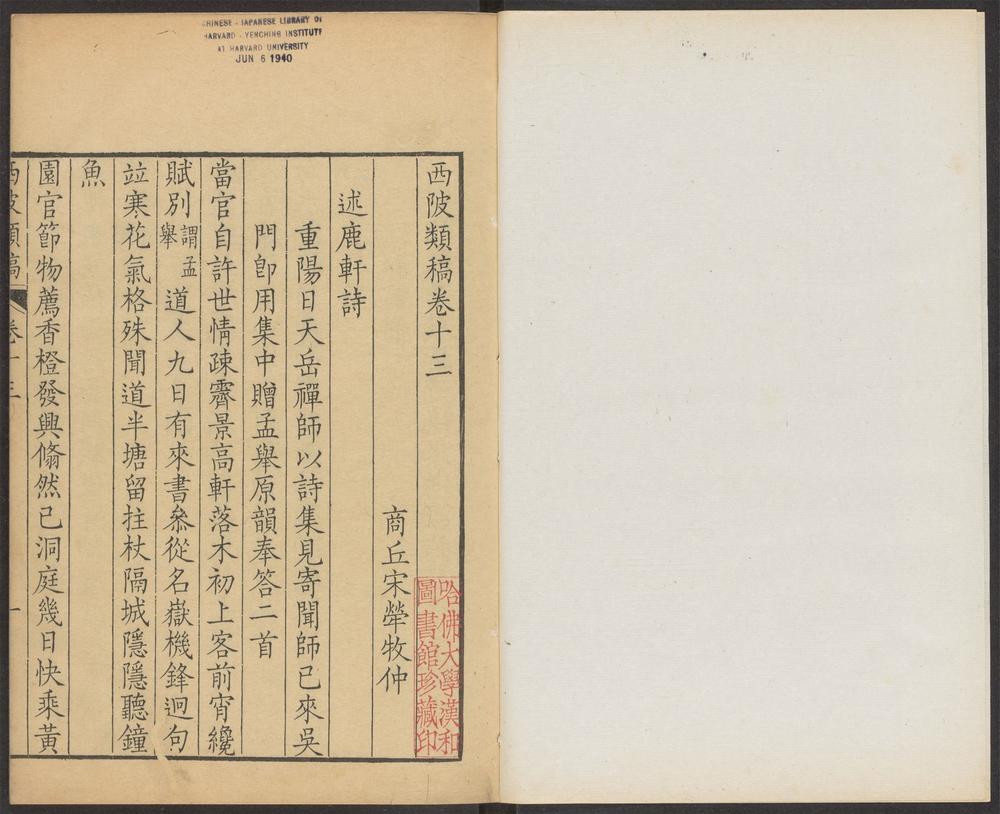 CHINESE - JAPANESE LIBRARY OF
HARVARD - YENCHING INSTITUTE
AT HARVARD UNIVERSITY
JUN 6 1940
西陂類稿卷十三
商丘宋犖牧仲
哈佛大學漢和
圖書館珍藏印
述鹿軒詩
重陽日天岳禪師以詩集見寄聞師已來吳
門卽用集中贈孟舉原韻奉答二首
當官自許世情疎霽景高軒落木初上客前宵纔
賦別謂孟舉道人九日有來書叅從名嶽機鋒迥句
竝寒花氣格殊聞道半塘留拄杖隔城隱隱聽鐘
魚
園官節物薦香橙發興翛然已洞庭幾日快乘黃
西陂類稿 卷十三 一